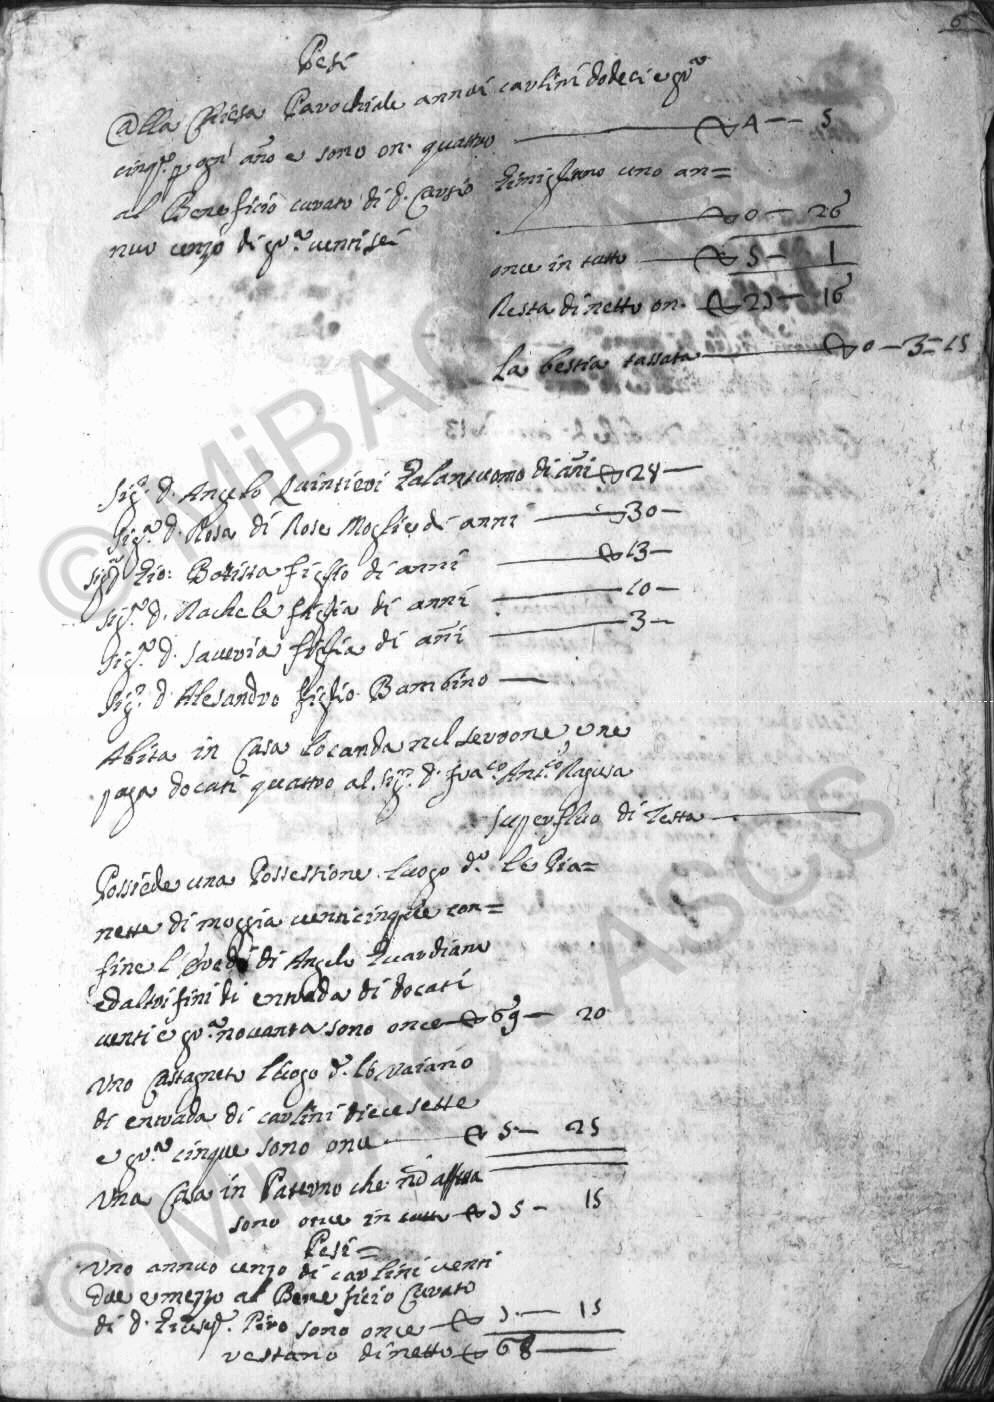 6
Pesi
Alla Chiesa Parochiale annui carlini dodeci e gr.a
cinq.e p ogn' año e sono on. quattro — 4 — 5
al Beneficio curato di d. Carlo uno an=
nuo cenzo di gr.a venti sei — 0 — 26
once in tutto — 5 — 1
Resta di netto on. 23 — 16
La bestia tassata — 0 — 3 — 15
Sig.r d. Angelo Quintieri Galantuomo di añi 28 —
Sig.ra d. Rosa di Rose Moglie di anni — 30 —
Sig.r Gio: Batista figlio di anni — 13 —
Sig.ra d. Rachele figlia di anni — 10 —
Sig.ra d. Saveria figlia di añi — 3 —
Sig.r d. Alesandro figlio Bambino —
Abita in Casa locanda nel Serrone, e ne
paga docati quattro al Sig.r d. Fra.co Ant.co Ragusa
superfluo di Testa —
Possiede una Possessione luogo d.o le Pia=
nette di moggia venticinque con=
fine l'eredi di Angelo Guardiano
ed altri fini di entrada di docati
venti e gr.a novanta sono once 69 — 20
Uno Castagneto luogo d.o lo Vaiano
di entrada di carlini diecesette
e gr.a cinque sono once — 5 — 25
Una Casa in Paterno che
sono once in tutto 75 — 15
Pesi =
Uno annuo cenzo di carlini venti
due e mezzo al Beneficio Curato
di d. Giusep.e Piro sono once — 7 — 15
restano di netto 68 —
© MiBAC - ASCS
© MiBAC - ASCS